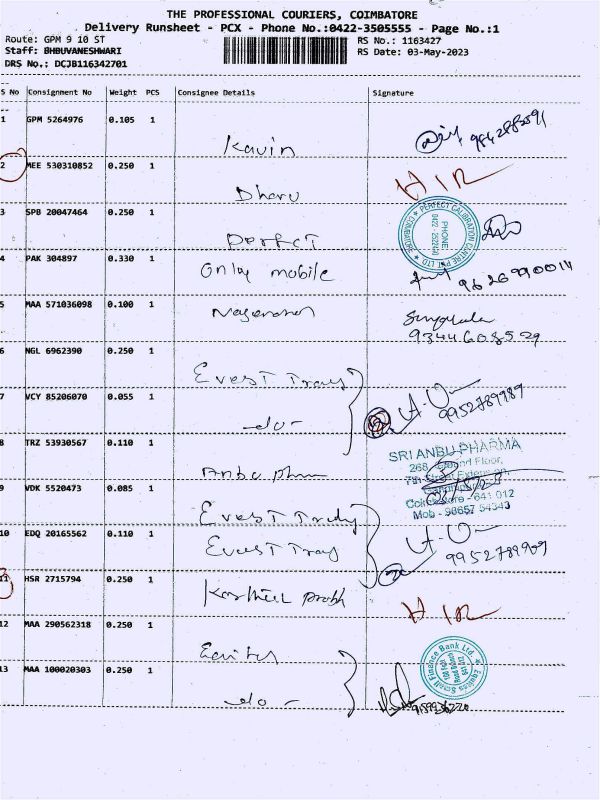 THE PROFESSIONAL COURIERS, COIMBATORE
Delivery Runsheet - PCX - Phone No.:0422-3505555 - Page No.:1
Route: GPM 9 10 ST RS No.: 1163427
Staff: BHBUVANESHWARI RS Date: 03-May-2023
DRS No.: DCJB116342701
S No Consignment No Weight PCS Consignee Details Signature
1 GPM 5264976 0.105 1
Kavin
2 MEE 530310852 0.250 1
Dharu
3 SPB 20047464 0.250 1
Perfect
PERFECT CALIBRATION CENTRE PVT LTD
PHONE
COIMBATORE
4 PAK 304897 0.330 1
Only mobile 9626990014
5 MAA 571036098 0.100 1
9344608529
6 NGL 6962390 0.250 1
Evest Tray
7 VCY 85206070 0.055 1
-do- 9952789989
8 TRZ 53930567 0.110 1
Anbu phar
SRI ANBU PHARMA
268, Second Floor,
7th Street Extension,
Coimbatore - 641 012
Mob - 98657 54343
9 VDK 5520473 0.085 1
Evest Trady
10 EDQ 20165562 0.110 1
Evest Tray 9952789909
11 HSR 2715794 0.250 1
12 MAA 290562318 0.250 1
Equitas
Equitas Small Finance Bank Ltd.
13 MAA 100020303 0.250 1
-do-